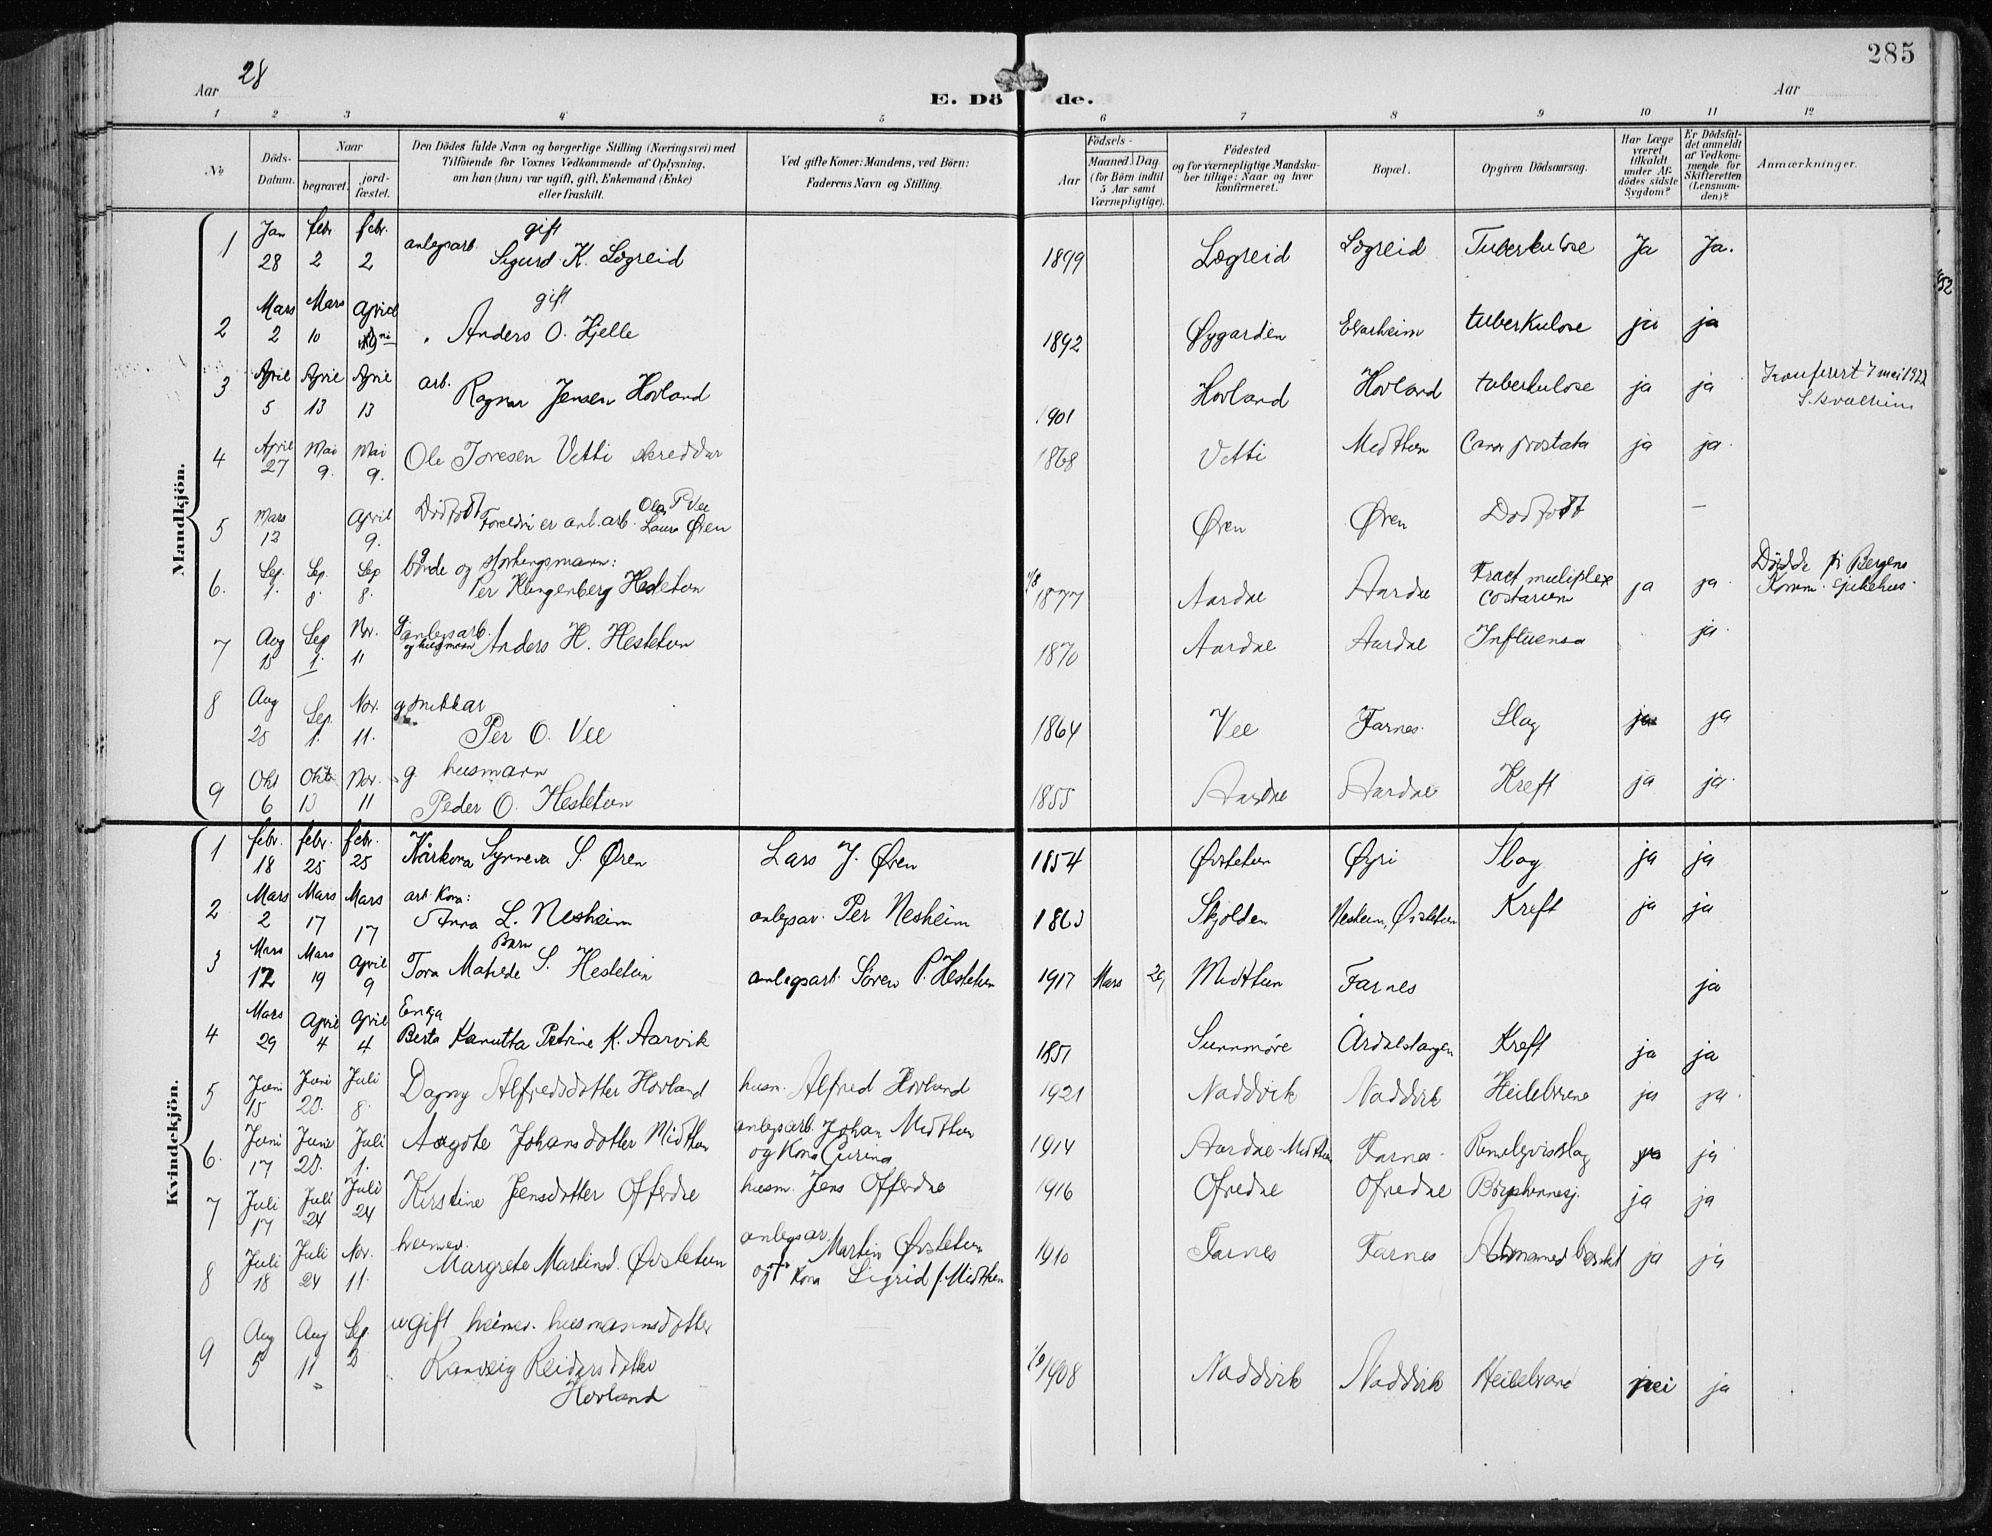 285
Aar 28
Aar
E. Döde.
1 2 3 4 5 6 7 8 9 10 11 12
No
Döds-Datum.
Naar
begravet.
jord-fæstet.
Den Dödes fulde Navn og borgerlige Stilling (Næringsvei) med
Tilföiende for Voxnes Vedkommende af Oplysning,
om han (hun) var ugift, gift, Enkemand (Enke)
eller fraskilt.
Ved gifte Koner: Mandens, ved Börn:
Faderens Navn og Stilling.
Födsels-
Aar
Maaned Dag
(for Börn indtil
5 Aar samt
Værnepligtige).
Födested
og for værnepligtige Mandska-
ber tillige: Naar og hvor
konfirmeret.
Bopæl.
Opgiven Dödsaarsag.
Har Læge
været
tilkaldt
under Af-
dödes sidste
Sygdom?
Er Dödsfal-
det anmeldt
af Vedkom-
mende for
Skifteretten
(Lensman-
den)?
Anmærkninger.
Mandkjön.
1 Jan 28 febr 2 febr. 2 anlegsarb. gift Sigurd K. Lægreid 1899 Lægreid Lægreid Tuberkulose Ja Ja.
2 Mars 2 Mars 10 April gift Anders O. Hjelle 1892 Øygarden Elvarheim tuberkulose ja ja
3 April 5 April 13 April 13 arb. Ragnar Jensen Hovland 1901 Hovland Hovland tuberkulose ja ja 7 mai 1922
4 April 27 Mai 9. Mai 9. Ole Toresen Vetti skreddar 1868 Vetti Midttun Cancr prostata ja ja.
5 Mars 12 April 9. Dødfødt Foreldri er anl.arb. Ola P Vee Laura Øren Øren Øren Dødfødt —
6. Sep. 1. Sep. 8. Sep 8. g bonde og storhengsmann: Per Klingenberg Hestetun 1877 Aardal Aardal Fract muliplex costarum ja ja. Dødde på Bergens Komm. sjukehus.
7 Aug 15 Sep 1. Nov. 11 g anlegsarb. og husmann Anders H. Hestetun 1870 Aardal Aardal Influensa ja.
8 Aug 25 Sep. 1. Nov. 11. g snikkar Per O. Vee 1864 Vee Farnes. Slag ja ja
9 Okt 6 Okt 13 Nov. 11 g husmann Peder O. Hestetun 1855 Aardal Aardal Kreft ja ja.
Kvindekjön.
1 febr. 18 febr. 25 febr. 25 Kårkona Synneva S. Øren Lars J. Øren 1854 Øvstetun Øyri Slag ja ja
2 Mars 2 Mars 17 Mars 17 arb. Kona: Anna L. Nesheim anlegsar. Per Nesheim 1863 Skjolden Nesheim, Øvstetun Kreft ja ja
3 Mars 12 Mars 19 April 9 Barn Tora Matilde S. Hestetun anlegsarb. Søren P. Hestetun 1917 Mars 29, Midttun Farnes ja
4 Mars 29 April 4 April 4 Enkja Berta Kanutta Petrine K. Aarvik 1851 Sunnmøre Årdalstangen Kreft ja ja
5 Juni 15 Juni 20. Juli 8. Dagny Alfredsdotter Hovland husm. Alfred Hovland 1921 Naddvik Naddvik Heilebrene ja ja.
6. Juni 17 Juni 20. Juli 1. Aagote Johansdotter Midttun anlegsarb. Johan Midttun og Kona Gurina 1914 Aardal-Midttun Farnes. ja ja
7 Juli 17 Juli 24 Juli 24 Kirstine Jensdotter Offerdal husm. Jens Offerdal 1916 Ofredal Ofredal ja ja
8 Juli 18 Juli 24 Nov. 11. heimev. Margrete Martinsd. Øvstetun anlegsar. Martin Øvstetun og Kona Sigrid f. Midttun 1910 Farnes Farnes ja ja
9 Aug 5 Aug 11 Sep. 2 ugift heimev. husmannsdotter Ranveig Reidarsdotter Hovland 1908 Naddvik Naddvik Heilebrane nei ja